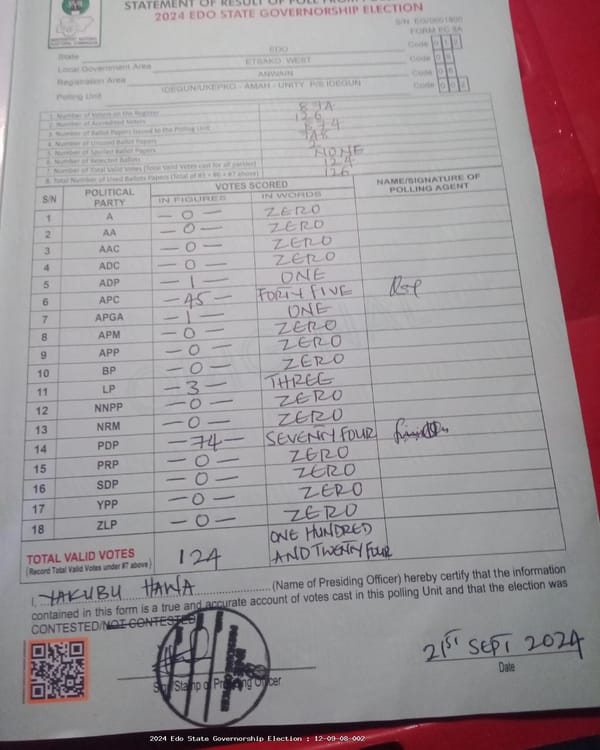 STATEMENT OF RESULT OF POLL FROM
2024 EDO STATE GOVERNORSHIP ELECTION
FORM EC 8A
State EDO Code
Local Government Area ETSAKO WEST Code
Registration Area ANWAIN Code
Polling Unit IDEGUN/UKEPKO - AMAH - UNITY P/S IDEGUN Code
1. Number of Voters on the Register 874
2. Number of Accredited Voters 126
3. Number of Ballot Papers Issued to the Polling Unit 874
4. Number of Unused Ballot Papers 748
5. Number of Spoiled Ballot Papers
6. Number of Rejected Ballots NONE
7. Number of Total Valid Votes (Total Valid Votes cast for all parties) 124
8. Total Number of Used Ballots Papers (Total of #5 + #6 + #7 above) 126
S/N POLITICAL PARTY VOTES SCORED NAME/SIGNATURE OF POLLING AGENT
IN FIGURES IN WORDS
1 A - 0 - ZERO
2 AA - 0 - ZERO
3 AAC - 0 - ZERO
4 ADC - 0 - ZERO
5 ADP - 1 - ONE
6 APC - 45 - FORTY FIVE
7 APGA - 1 - ONE
8 APM - 0 - ZERO
9 APP - 0 - ZERO
10 BP - 0 - ZERO
11 LP - 3 - THREE
12 NNPP - 0 - ZERO
13 NRM - 0 - ZERO
14 PDP - 74 - SEVENTY FOUR
15 PRP - 0 - ZERO
16 SDP - 0 - ZERO
17 YPP - 0 - ZERO
18 ZLP - 0 - ZERO
TOTAL VALID VOTES 124 ONE HUNDRED
(Record Total Valid Votes under #7 above) AND TWENTY FOUR
I, YAKUBU HAWA (Name of Presiding Officer) hereby certify that the information
contained in this form is a true and accurate account of votes cast in this polling Unit and that the election was
CONTESTED/NOT CONTESTED
21ST SEPT 2024
Sign/Stamp of Presiding Officer Date
2024 Edo State Governorship Election : 12-09-08-002